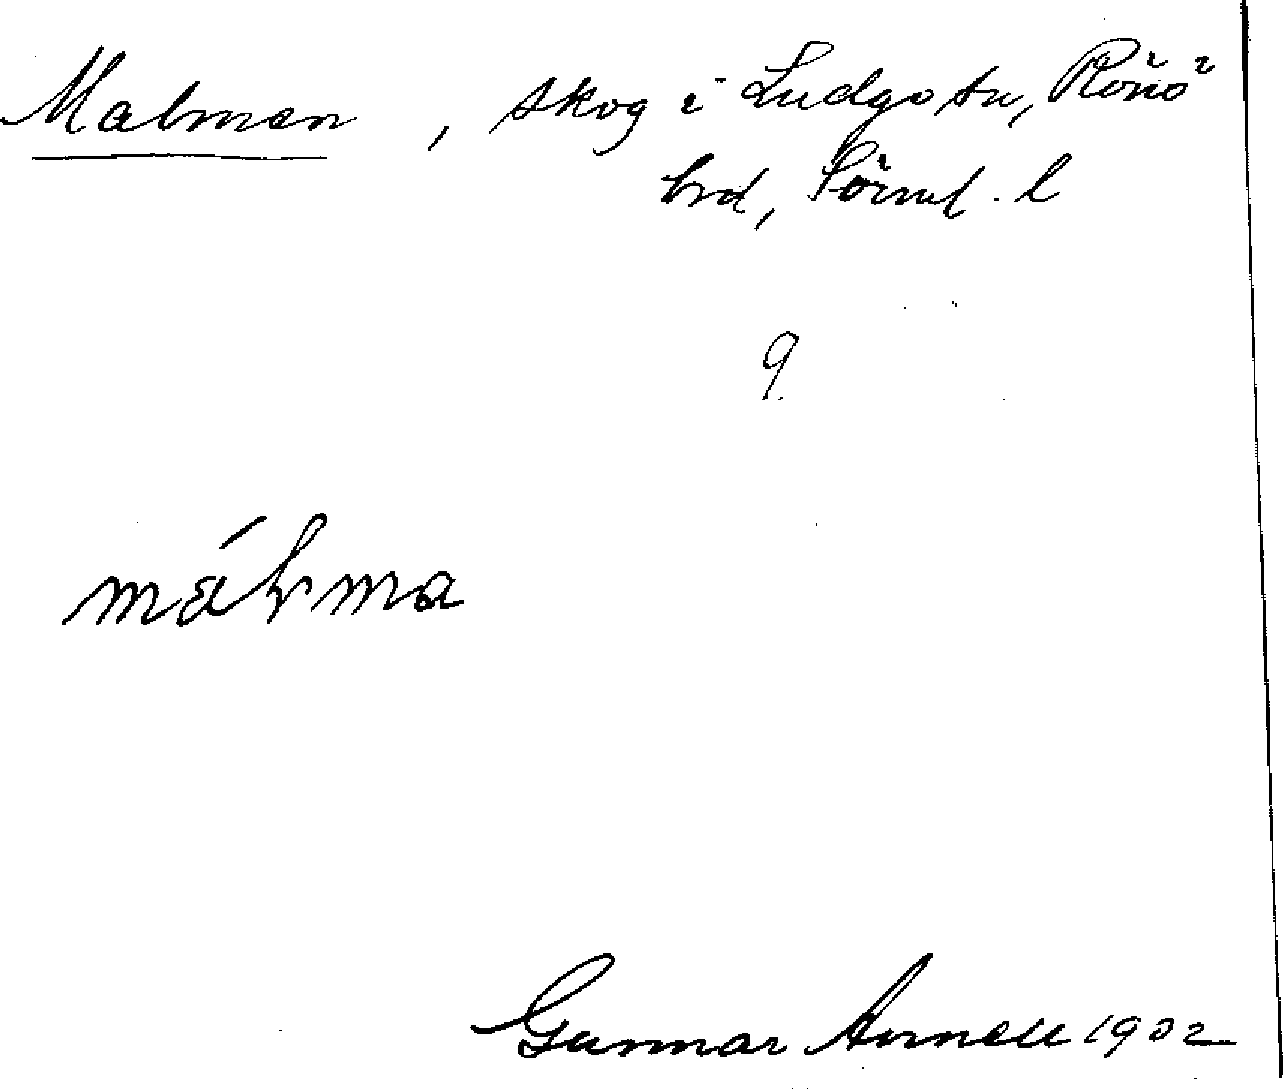 Malmen, skog i Ludgo sn, Rönö
hrd, Sörml. l
9
Gunnar Arnell 1902